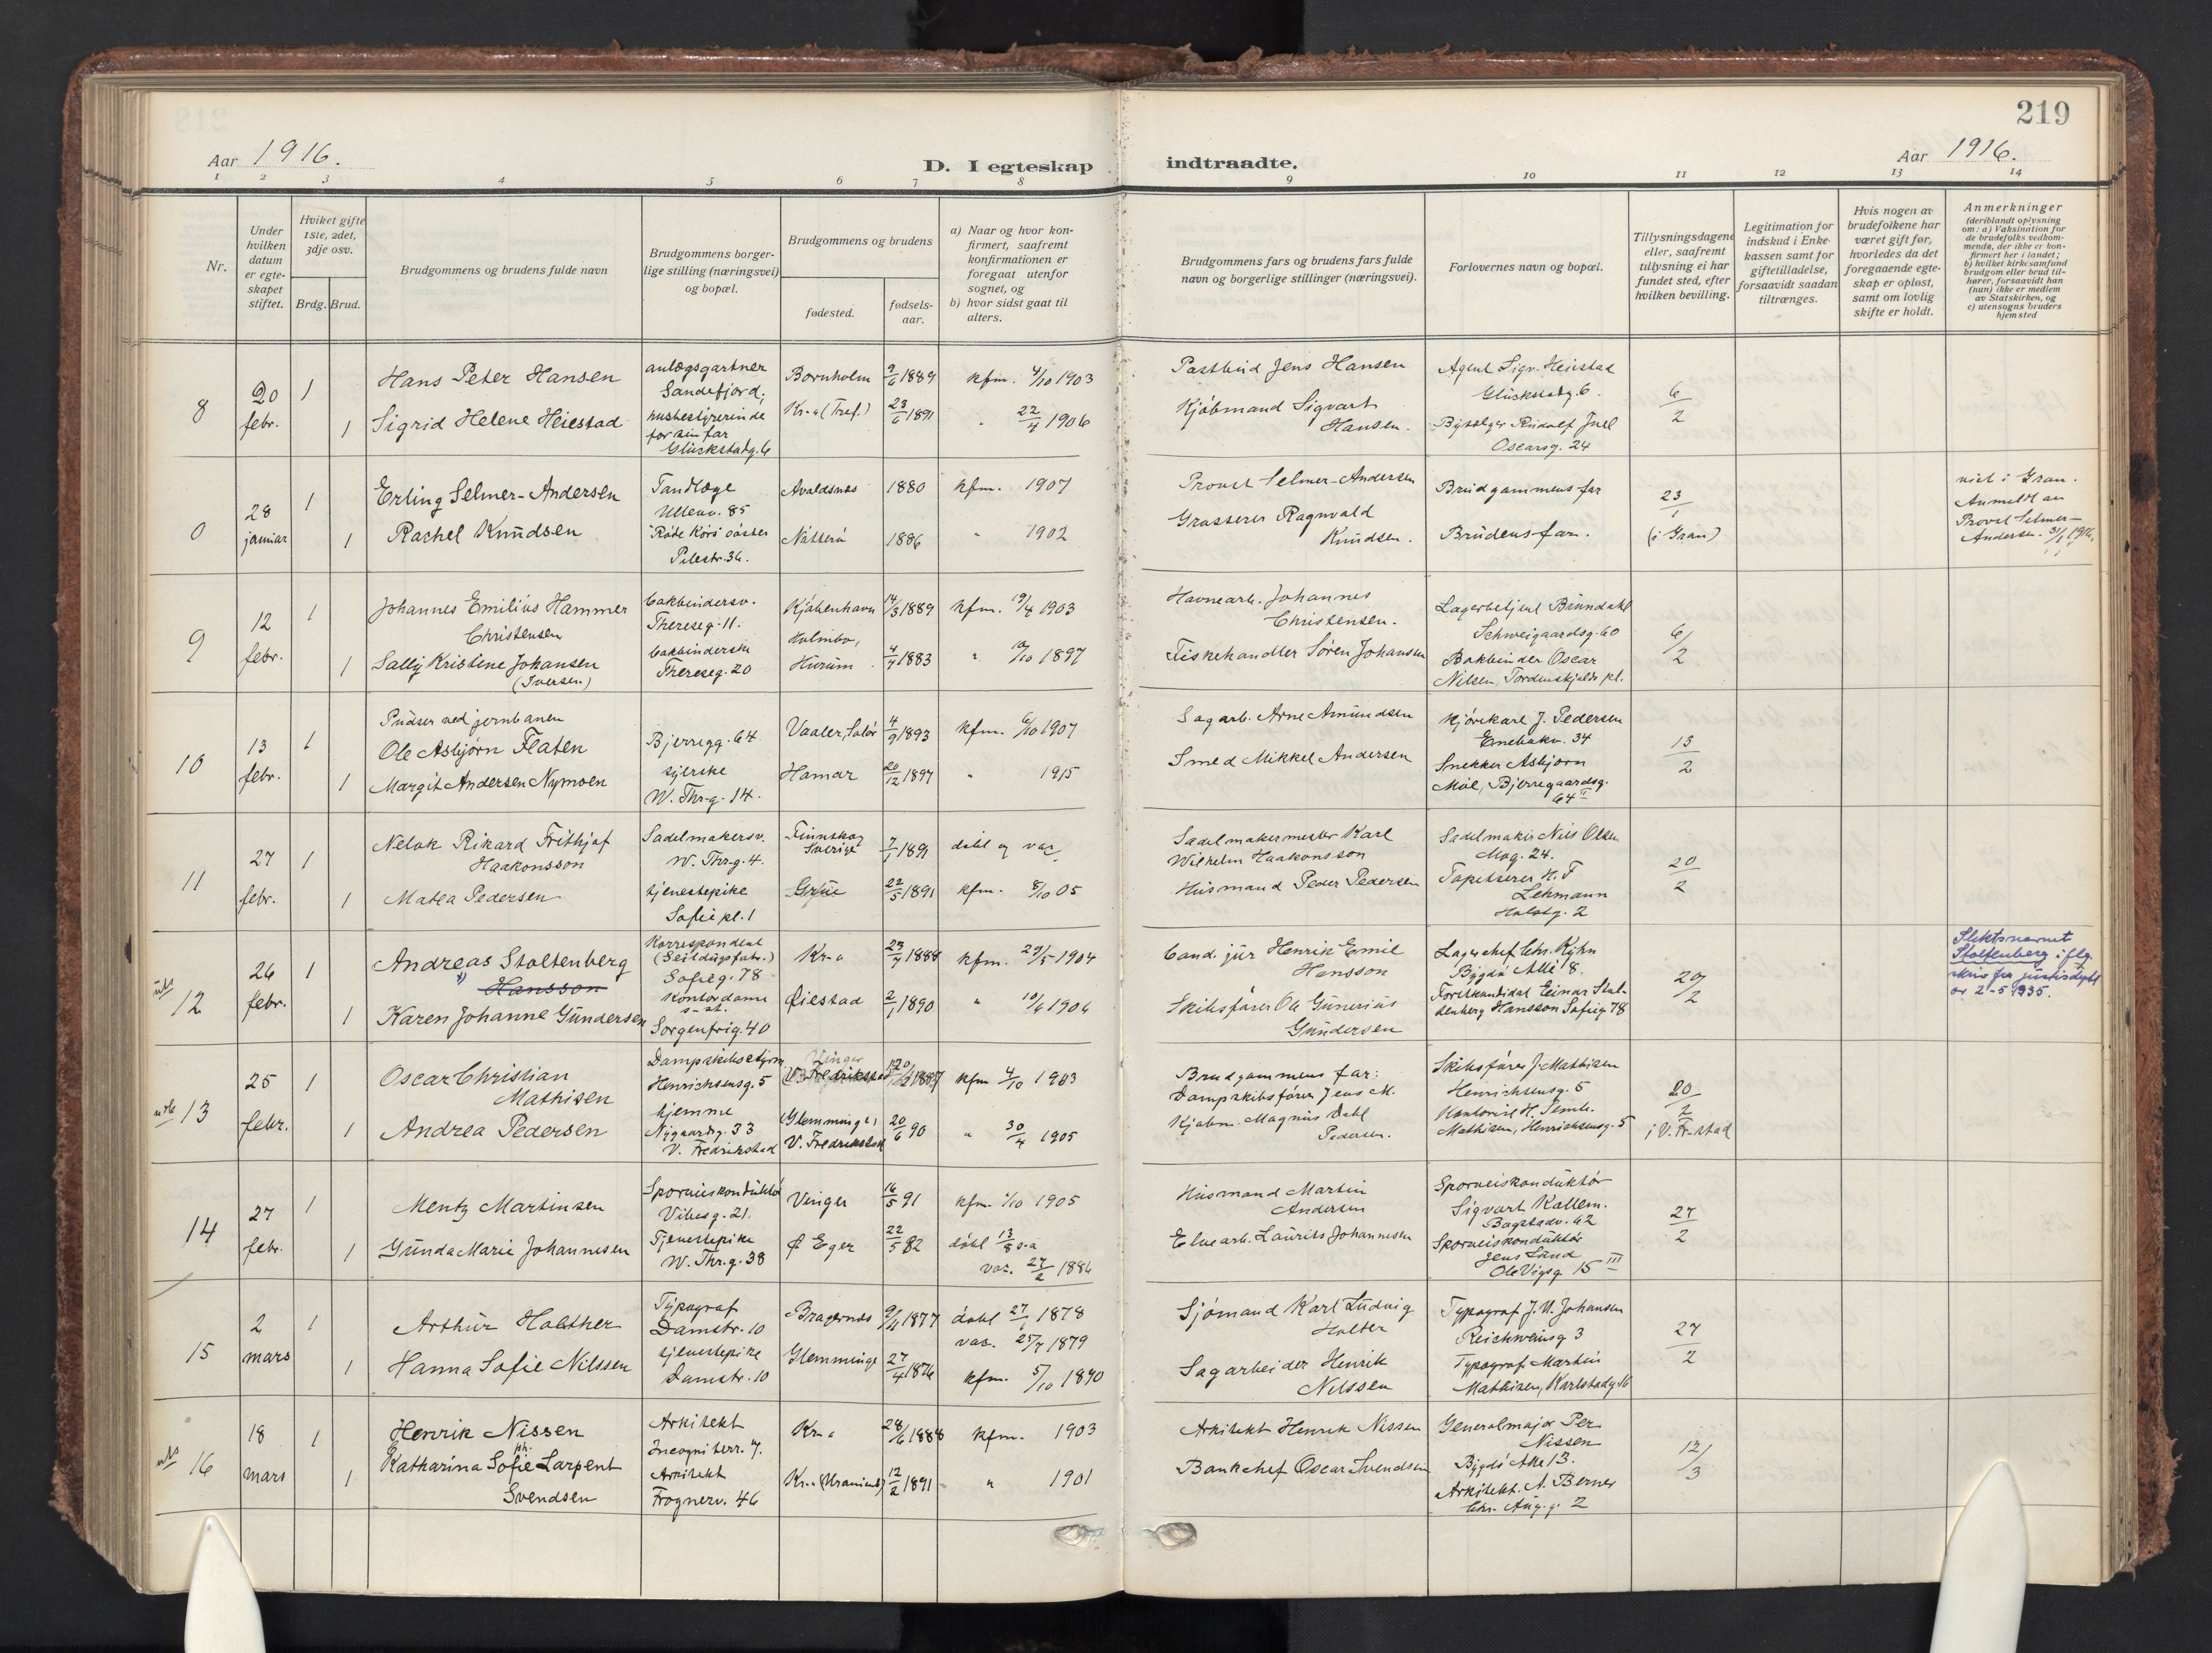 219
Aar 1916.
D. I egteskap
indtraadte.
Aar 1916.
1 2 3 4 5 6 7 8 9 10 11 12 13 14
Nr.
Under hvilken datum er egteskapet stiftet.
Hviket gifte 1ste, 2det, 3dje osv.
Brdg. Brud.
Brudgommens og brudens fulde navn
Brudgommens borgerlige stilling (næringsvei) og bopæl.
Brudgommens og brudens
fødested.
fødsels-aar.
a) Naar og hvor konfirmert, saafremt konfirmationen er foregaat utenfor sognet, og
b) hvor sidst gaat til alters.
Brudgommens fars og brudens fars fulde navn og borgerlige stillinger (næringsvei).
Forlovernes navn og bopæl.
Tillysningsdagene eller, saafremt tillysning ei har fundet sted, efter hvilken bevilling.
Legitimation for indskud i Enkekassen samt for giftetilladelse, forsaavidt saadan tiltrænges.
Hvis nogen av brudefolkene har været gift før, hvorledes da det foregaaende egteskap er opløst, samt om lovlig skifte er holdt.
Anmerkninger
(deriblandt oplysning om: a) Vaksination for de brudefolks vedkommende, der ikke er konfirmert her i landet;
b) hvilket kirkesamfund brudgom eller brud tilhører, forsaavidt han (hun) ikke er medlem av Statskirken, og
c) utensogns bruders hjemsted
8
20 febr.
1
Hans Peter Hansen
anlægsgartner
Sandefjord,
Bornholm
9/6 1889
kfm. 4/10 1903
Postbud Jens Hansen
Agent Sigv. Heiestad
Glückstadg. 6.
6/2
1
Sigrid Helene Heiestad
husbestyrerinde
for sin far
Glückstadg. 6
Kr-a (Tref.)
23/6 1891
" 22/4 1906
Kjøbmand Sigvart
Hansen.
Byselger Rudolf Juel
Oscarsg. 24
0
28 januar
1
Erling Selmer-Andersen
Tandlæge
Ullevv. 85
Avaldsnes
1880
kfm. 1907
Provst Selmer-Andersen
Brudgommens far
23/1
(i Gran)
viet i Gran.
Anmeldt av
Provst Selmer-
Andersen. 31/1 1916.
1
Rachel Knudsen
"Røde Kors" søster
Pilestr. 36.
Nøtterø
1886
" 1902
Grosserer Ragnvald
Knudsen.
Brudens far.
9
12 febr.
1
Johannes Emilius Hammer
Christensen
bokbindersv.
Thereseg. 11.
Kjøbenhavn
14/3 1889
kfm. 19/4 1903
Havnearb. Johannes
Christensen.
Lagerbetjent Brundahl
Schweigaardsg. 60
6/2
1
Sally Kristine Johansen
(Iversen)
bokbinderske
Thereseg. 20
Holmbo,
Hurum
4/7 1883
" 10/10 1897
Fiskehandler Søren Johansen
Bokbinder Oscar
Nilsen, Tordenskjolds pl.
10
13 febr.
1
Pudser ved jernbanen
Ole Asbjørn Flaten
Bjerregg. 64
Vaaler, Solør
4/9 1893
kfm. 6/10 1907
Sagarb. Arne Amundsen
Kjørekarl J. Pedersen
Enebakv. 34
13/2
1
Margit Andersen Nymoen
syerske
W. Thr-g. 14.
Hamar
20/12 1897
" 1915
Smed Mikkel Andersen
Snekker Asbjørn
Moe, Bjerregaardsg.
64 II
11
27 febr.
1
Nelok Rikard Frithjof
Haakonsson
Sadelmakersv.
W. Thr-g. 4.
Finnskog
Sverige
7/1 1891
døbt og vac.
Sadelmakermester Karl
Wilhelm Haakonsson
Sadelmaker Nils Olsen
Mog. 24.
20/2
1
Matea Pedersen
tjenestepike
Sofie pl. 1
Grue
22/5 1891
kfm. 8/10 05
Husmand Peder Pedersen
Tapetserer H. F
Lehmann
Holstg. 2
12
26 febr.
1
Andreas Stoltenberg
Hansson
Korrespondent
(Seildugsfabr.)
Sofieg. 78
Kr-a
23/7 1888
kfm. 29/5 1904
Cand. jur Henrik Emil
Hansson
Lagerchef Chr. Kyhn
Bygdø Allé 8.
20/2
Slektsnavnet
Stoltenberg iflg.
skriv fra justisdept
av 2-5 1935.
1
Karen Johanne Gundersen
Kontordame
s-st.
Sorgenfrig. 40
Øiestad
2/1 1890
" 10/6 1906
Skibsfører Ole Gunerius
Gundersen
Forstkandidat Einar Stoltenberg Hansson Sofieg 78
13
25 febr.
1
Oscar Christian
Mathisen
Henrichsensg. 5
V. Fredrikstad
kfm 4/10 1903
Brudgommens far:
Dampskibsfører Jens M.
Skibsfører J. Mathisen
Henrichsensg. 5
20/2
i V. Fr-stad
1
Andrea Pedersen
hjemme
Nygaardsg. 33
V. Fredrikstad
(Glemminge)
V. Fredrikstad
20/6 90
" 30/4 1905
Kjøbm. Magnus Dahl
Pedersen.
Kontorist H. Semb.
Mathisen, Henrichsensg. 5
14
27 febr.
1
Mentz Martinsen
Sporveiskonduktør
Vibesg. 21.
Vinger
16/5 91
kfm. 1/10 1905
Husmand Martin
Andersen
Sporveiskonduktør
Sigvart Kallem.
Bogstadv. 62
27/2
1
Gunda Marie Johannesen
Tjenestepike
W. Thr.g. 38
Ø Eger
22/5 82
døbt 13/8 s.a
vac. 27/2 1884
Elvearb. Laurits Johannesen
Sporveiskonduktør
Jens Sand
Ole Vigsg 15 III
15
2 mars
1
Arthur Holther
Typograf
Damstr. 10
Bragernes
9/11 1877
døbt 27/1 1878
vac. 25/7 1879
Sjømand Karl Ludvig
Holter
Typograf J. W. Johansen
Reichweinsg 3
27/2
1
Hanna Sofie Nilssen
tjenestepike
Damstr. 10
Glemminge
27/4 1876
kfm. 5/10 1890
Sagarbeider Henrik
Nilssen
Typograf Martin
Mathisen, Karlstadg 16
16
18 mars
1
Henrik Nissen
Arkitekt
Incogniterr. 7.
Kr-a
28/6 1888
kfm. 1903
Arkitekt Henrik Nissen
Generalmajor Per
Nissen
Bygdø Alle 13.
12/3
1
Katharina Sofie Larpent
Svendsen
Arkitekt
Frognerv. 46
Kr.a (Uranienb)
12/2 1891
" 1901
Bankchef Oscar Svendsen
Arkitekt. A. Berner
Chr. Aug. g. 2